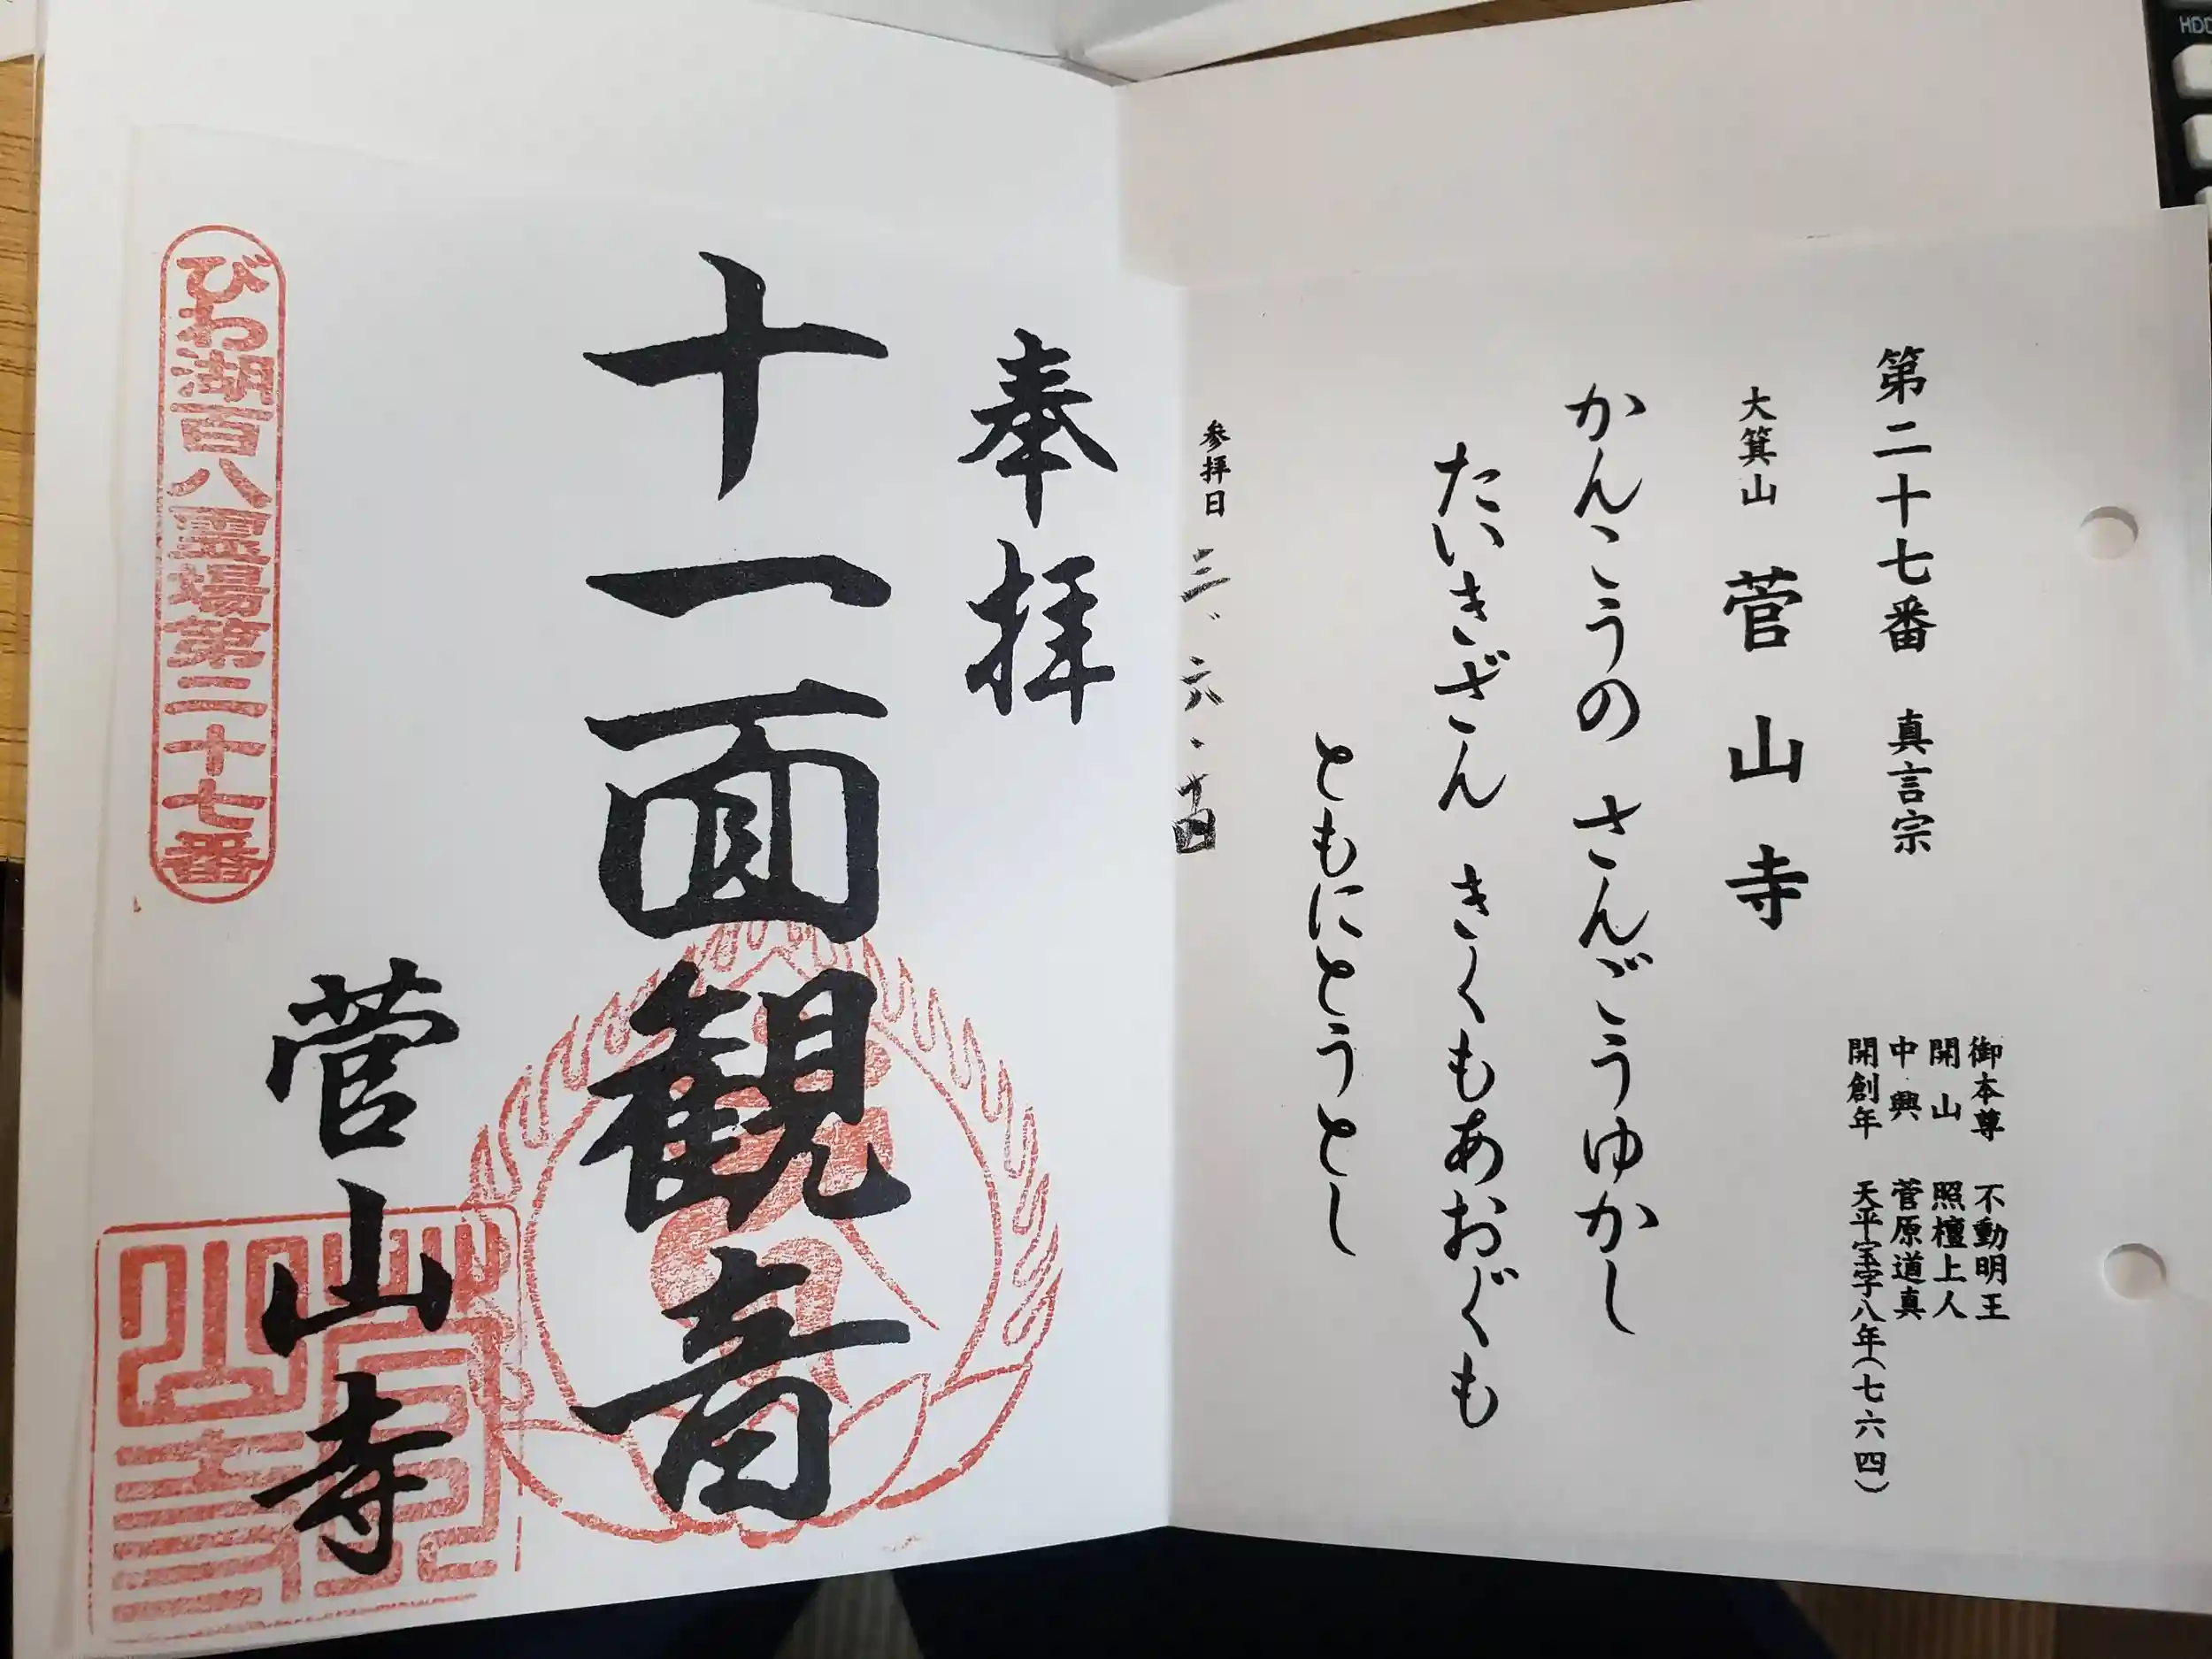 第二十七番 真言宗
御本尊 不動明王
開山 照檀上人
中興 菅原道真
開創年 天平宝字八年(七六四)
大箕山 菅山寺
かんこうの さんごうゆかし
たいきざん きくもあおぐも
ともにとうとし
参拝日 三、六、十四
奉拝
十一面観音
菅山寺
びわ湖百八霊場第二十七番